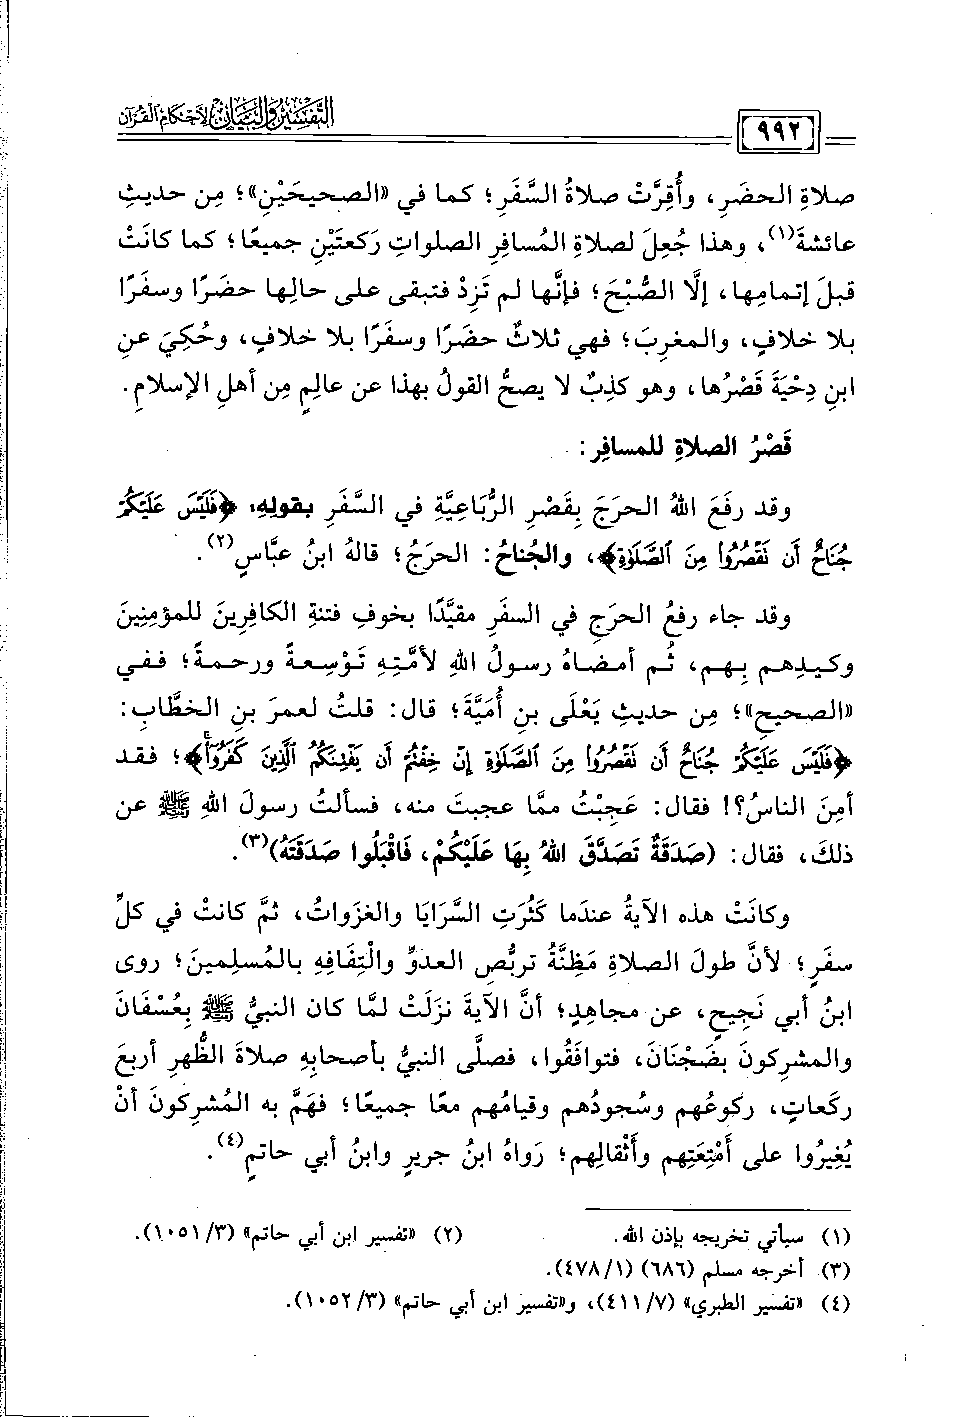 التفسير والبيان لأحكام القرآن
٩٩٢
صلاةِ الحضَرِ، وأُقِرَّتْ صلاةُ السَّفَرِ؛ كما في «الصحيحَيْنِ»؛ مِن حديثِ
عائشةَ(١)، وهذا جُعِلَ لصلاةِ المُسافِرِ الصلواتِ رَكعتَيْنِ جميعًا؛ كما كانَتْ
قبلَ إتمامِها، إلَّا الصُّبْحَ؛ فإنَّها لم تَزِدْ فتبقى على حالِها حضَرًا وسفَرًا
بلا خلافٍ، والمغرِبَ؛ فهي ثلاثٌ حضَرًا وسفَرًا بلا خلافٍ، وحُكِيَ عنِ
ابنِ دِحْيَةَ قَصْرُها، وهو كذِبٌ لا يصحُّ القولُ بهذا عن عالِمٍ مِن أهلِ الإسلامِ.
قَصْرُ الصلاةِ للمسافِرِ:
وقد رفَعَ اللهُ الحرَجَ بِقَصْرِ الرُّبَاعِيَّةِ في السَّفَرِ بقولِهِ: ﴿فَلَيْسَ عَلَيْكُمْ
جُنَاحٌ أَن نَقْصُرُوا مِنَ ٱلصَّلَوٰةِ﴾، والجُناحُ: الحرَجُ؛ قالهُ ابنُ عبَّاسٍ(٢).
وقد جاء رفعُ الحرَجِ في السفَرِ مقيَّدًا بخوفِ فتنةِ الكافِرِينَ للمؤمِنِينَ
وكيدِهم بِهم، ثُم أمضاهُ رسولُ اللهِ لأمَّتِهِ تَوْسِعةً ورحمةً؛ ففي
«الصحيحِ»؛ مِن حديثِ يَعْلَى بنِ أُمَيَّةَ؛ قال: قلتُ لعمرَ بنِ الخطَّابِ:
﴿فَلَيْسَ عَلَيْكُمْ جُنَاحٌ أَن نَقْصُرُوا مِنَ ٱلصَّلَوٰةِ إِنْ خِفْتُمْ أَن يَفْتِنَكُمُ ٱلَّذِينَ كَفَرُوٓاْ﴾؛ فقد
أمِنَ الناسُ؟! فقال: عَجِبْتُ ممَّا عجبتَ منه، فسألتُ رسولَ اللهِ ﷺ عن
ذلكَ، فقال: (صَدَقَةٌ تَصَدَّقَ اللهُ بِهَا عَلَيْكُمْ، فَاقْبَلُوا صَدَقَتَهُ)(٣).
وكانَتْ هذه الآيةُ عندَما كَثُرَتِ السَّرَايَا والغزَواتُ، ثمَّ كانتْ في كلِّ
سفَرٍ؛ لأنَّ طولَ الصلاةِ مَظِنَّةُ تربُّصِ العدوِّ والْتِفَافِهِ بالمُسلِمينَ؛ روى
ابنُ أبي نَجِيحٍ، عن مجاهِدٍ؛ أنَّ الآيةَ نزلَتْ لمَّا كان النبيُّ ﷺ بِعُسْفَانَ
والمشرِكونَ بضَجْنَانَ، فتوافَقُوا، فصلَّى النبيُّ بأصحابِهِ صلاةَ الظُّهرِ أربعَ
ركَعاتٍ، ركوعُهم وسُجودُهم وقيامُهم معًا جميعًا؛ فهَمَّ به المُشركونَ أنْ
يُغِيرُوا على أَمْتِعَتِهم وأَثْقالِهم؛ رَواهُ ابنُ جريرٍ وابنُ أبي حاتمٍ(٤).
(١) سيأتي تخريجه بإذن الله.
(٢) «تفسير ابن أبي حاتم» (٣/ ١٠٥١).
(٣) أخرجه مسلم (٦٨٦) (١/ ٤٧٨).
(٤) «تفسير الطبري» (٧/ ٤١١)، و«تفسير ابن أبي حاتم» (٣/ ١٠٥٢).